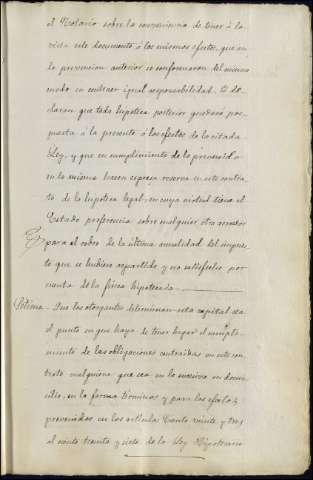 el Notario sobre la conveniencia de tener á la
vista este documento á los mismos efectos, que en
la prevencion anterior se conformaron del mismo
modo en contraer igual responsabilidad. Se de-
claran que toda hipoteca posterior quedará pos-
puesta á la presente á los efectos de la citada
Ley, y que en cumplimiento de lo prevenido
en la misma hacen expresa reserva en este contra-
to de la hipoteca legal, en cuya virtud tiene el
Estado preferencia sobre cualquier otro acreedor
para el cobro de la última anualidad del impues-
to que se hubiere repartido y no satisfecho por
cuenta de la finca hipotecada.
Sétima - Que los otorgantes determinan esta capital sea
el punto en que haya de tener lugar el cumpli-
miento de las obligaciones contraidas en este con-
trato cualquiera que sea en lo sucesivo su domi-
cilio, en la forma, términos y para los efectos
prevenidos en los artículos ciento veinte y tres
al ciento treinta y siete de la Ley Hipotecaria